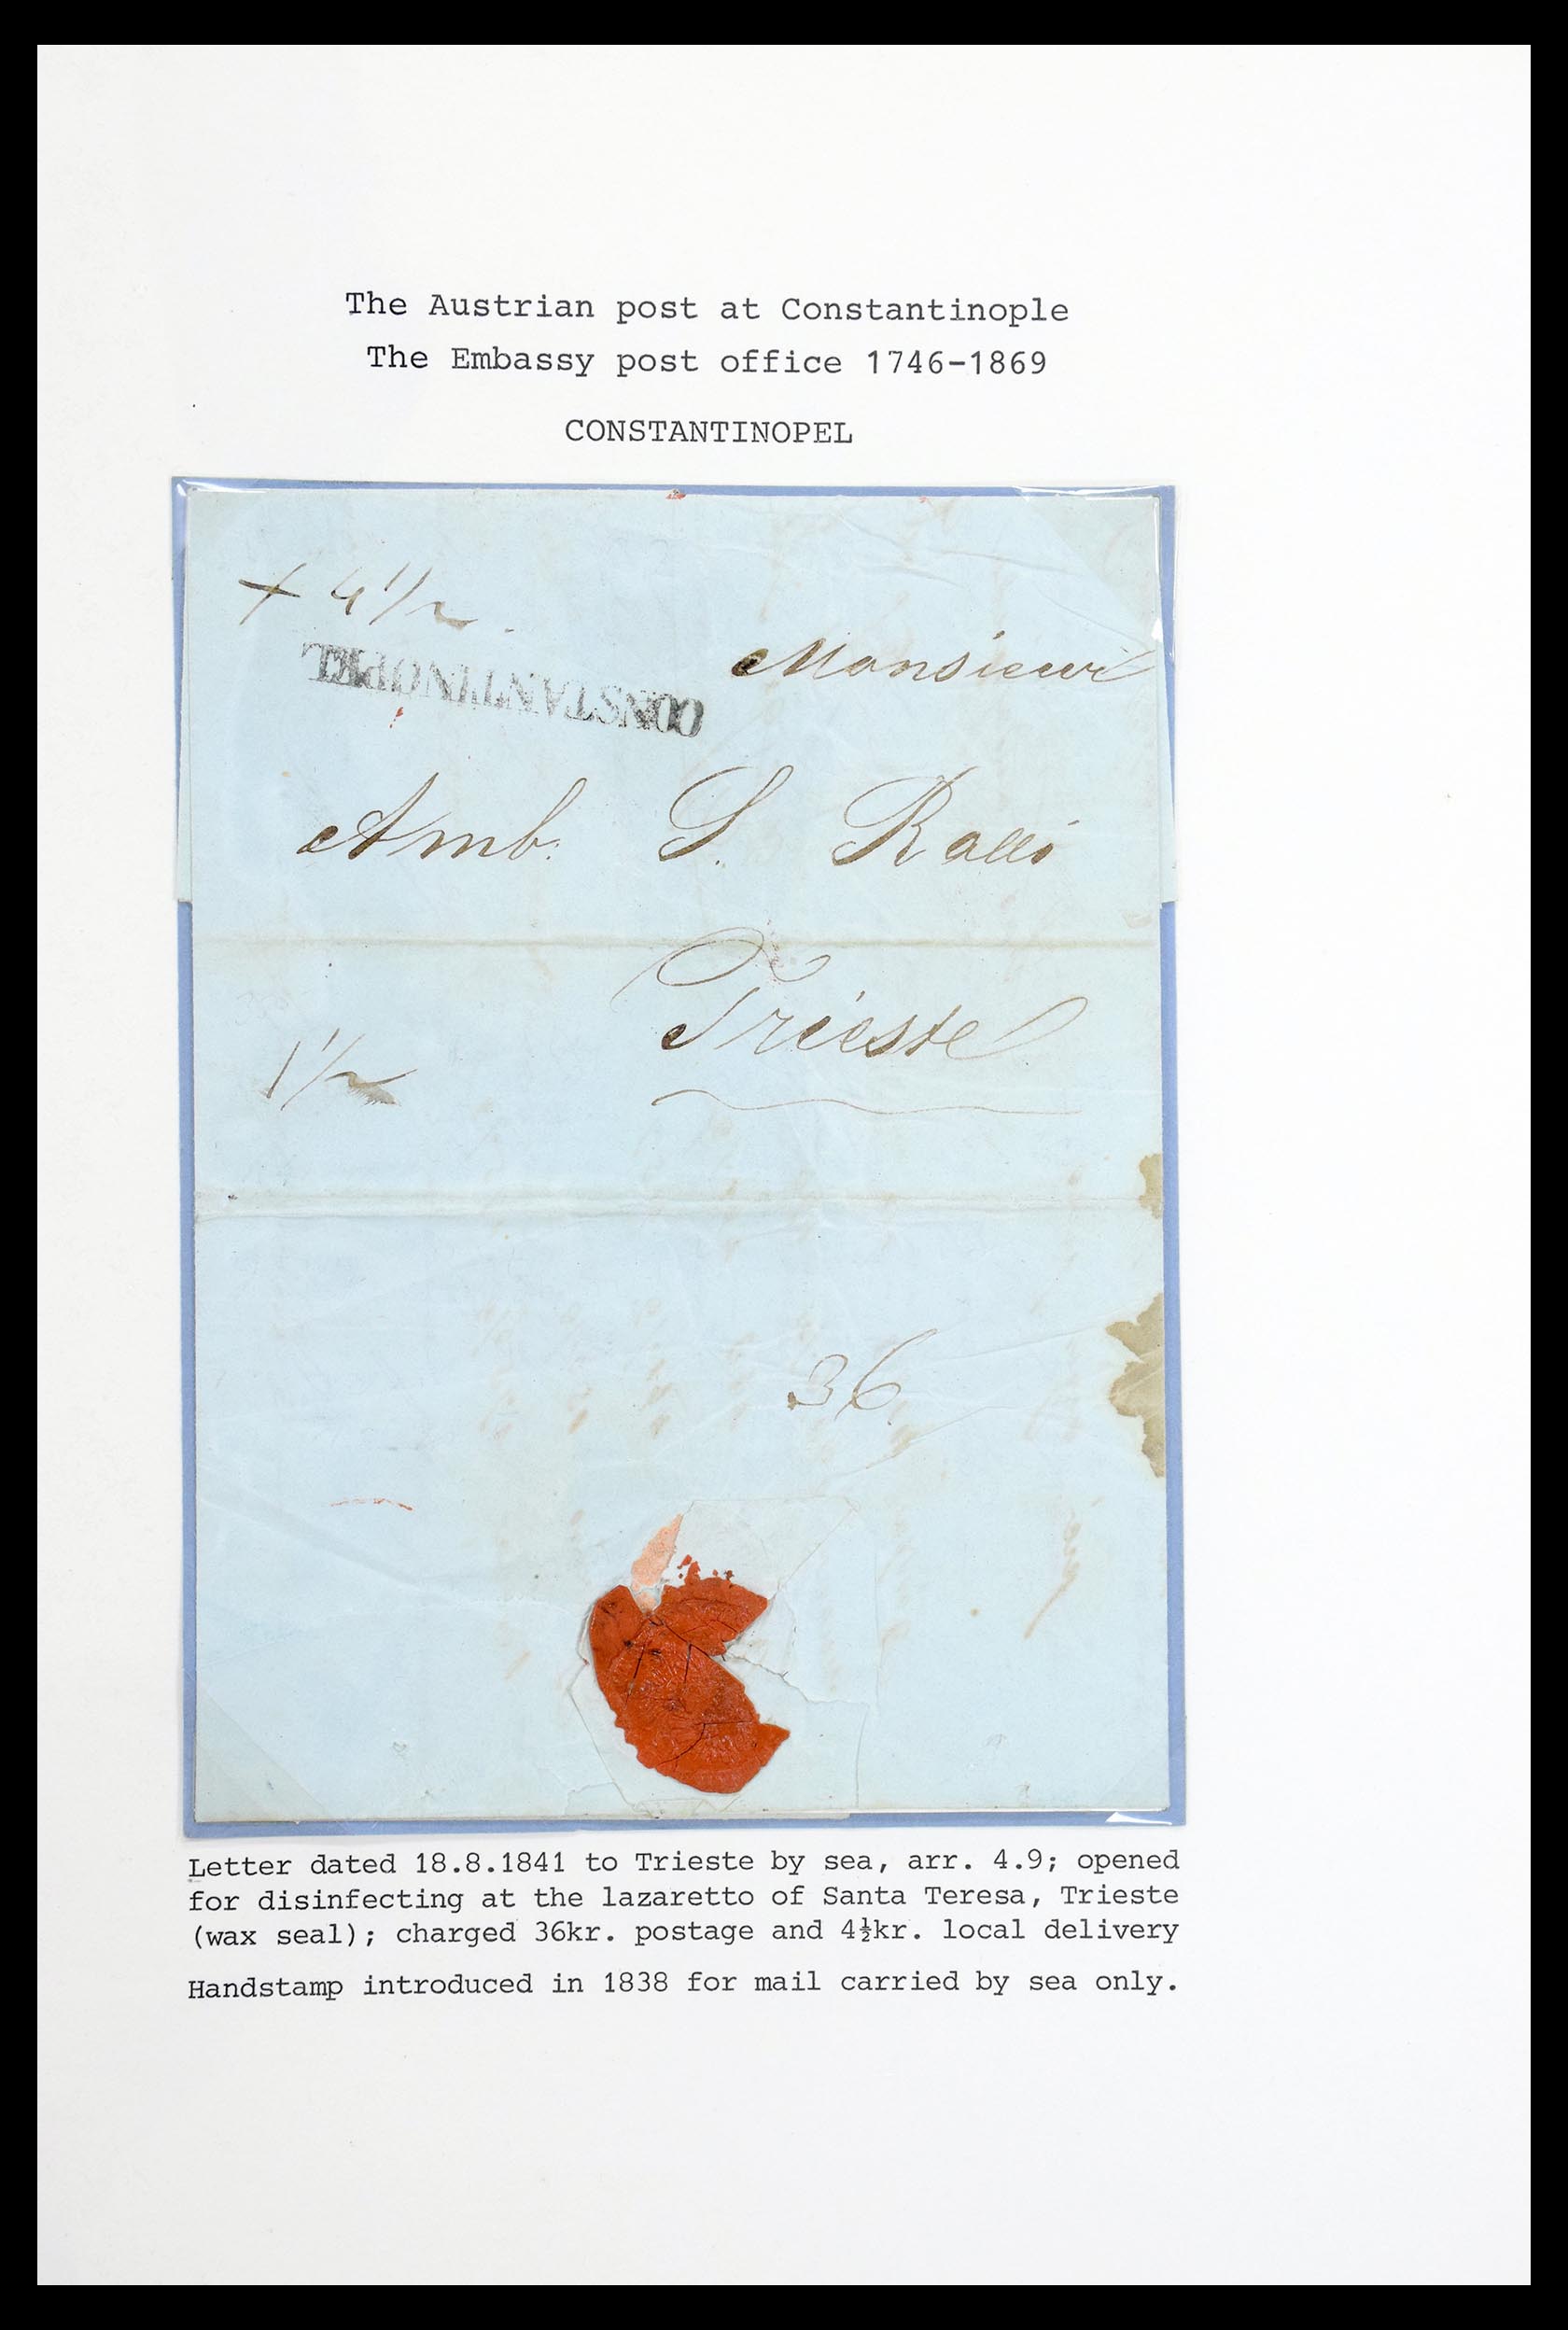 The Austrian post at Constantinople
The Embassy post office 1746-1869
CONSTANTINOPEL
+ 4 1/2
CONSTANTINOPEL
Monsieur
Amb. S. Ralli
Trieste
1 1/2
36
Letter dated 18.8.1841 to Trieste by sea, arr. 4.9; opened
for disinfecting at the lazaretto of Santa Teresa, Trieste
(wax seal); charged 36kr. postage and 4½kr. local delivery
Handstamp introduced in 1838 for mail carried by sea only.